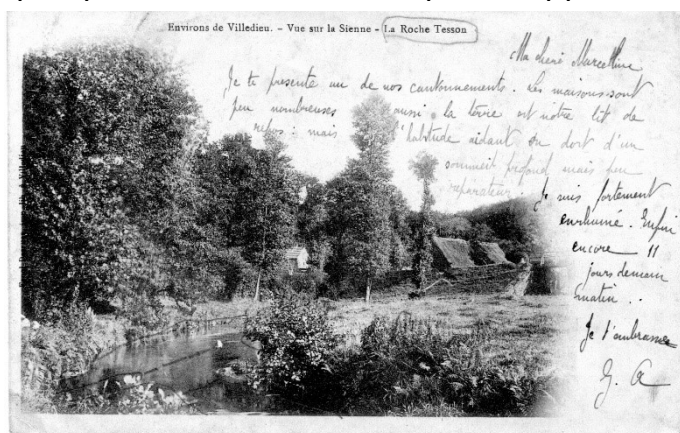 Environs de Villedieu. - Vue sur la Sienne - La Roche Tesson
Ma chère Marcelline,
Je te présente un de nos cantonnements. Les maisons sont
peu nombreuses aussi la terre est notre lit de
repos ; mais l'habitude aidant on dort d'un
sommeil profond mais peu
réparateur. Je suis fortement
enrhumé. Enfin
encore 11
jours demain
matin..
Je t'embrasse